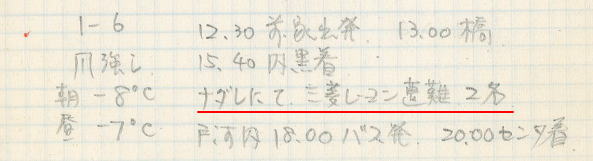 1-6 12.30 出発 13.00 橋
強し 15.40 内黒着
朝 -8°C ナダレにて 三菱レーヨン遭難 2名
昼 -7°C 戸河内 18.00 バス発 20.00センタ着